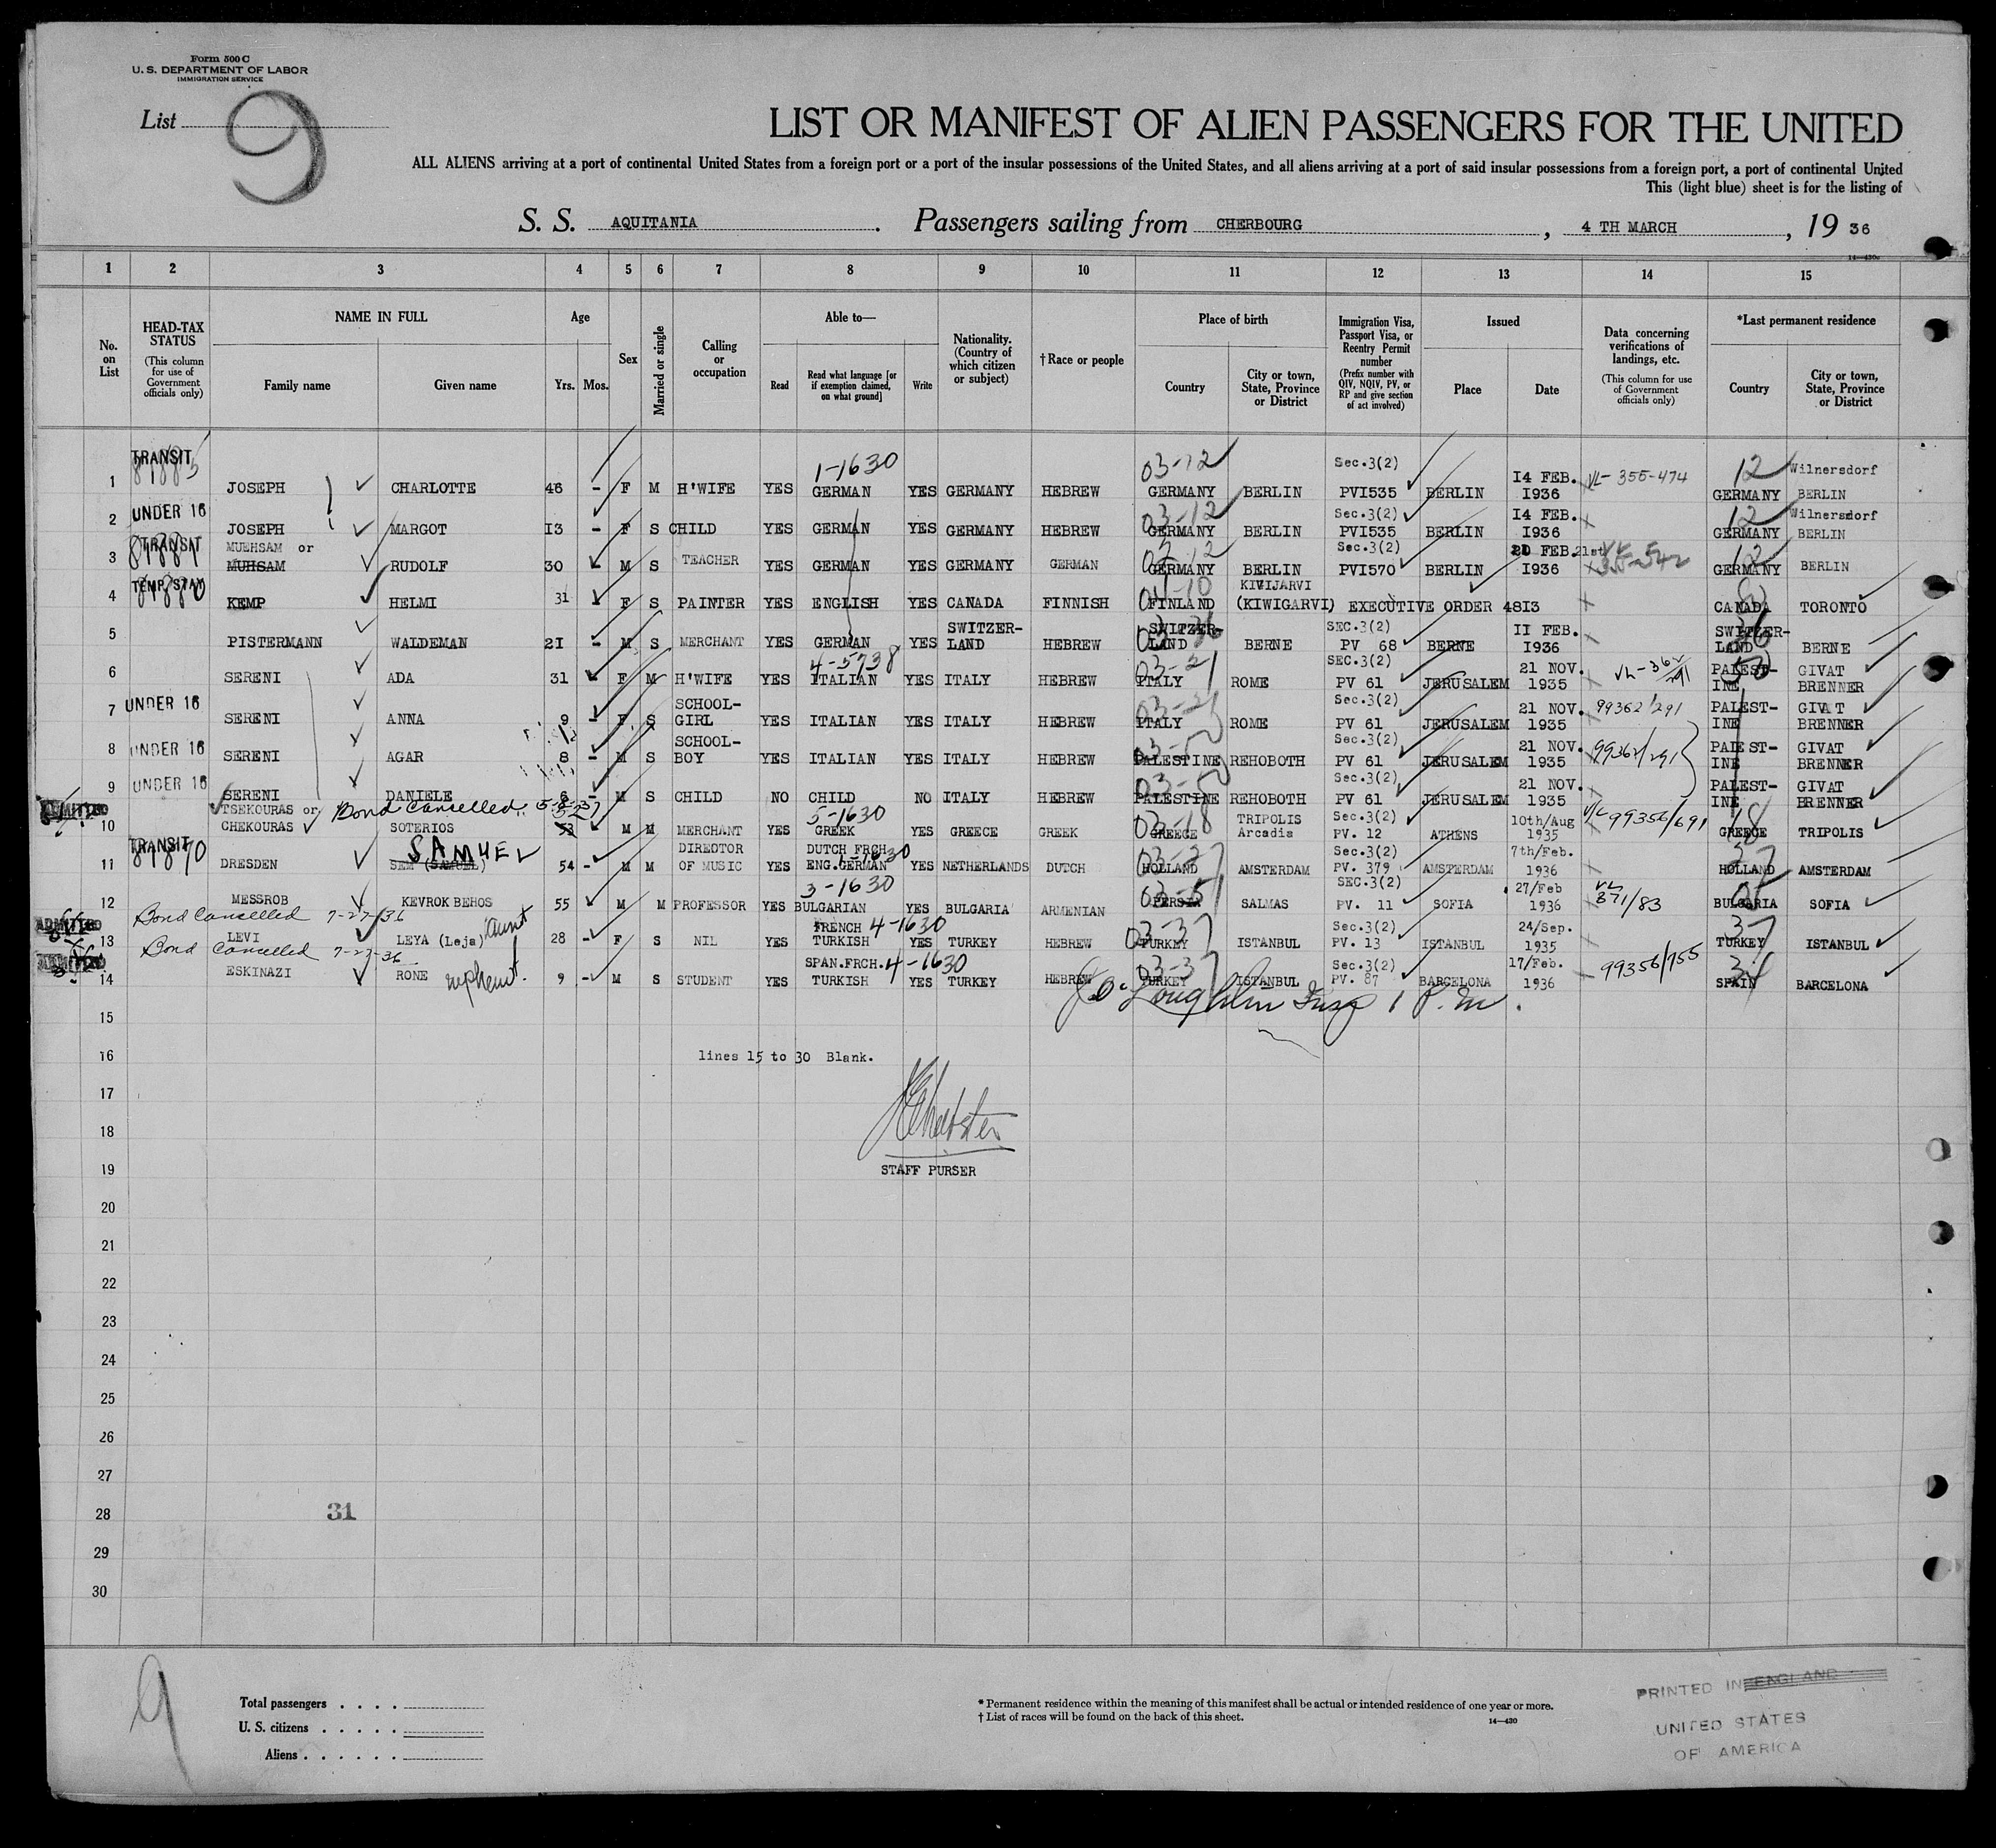 Form 500 C
U. S. DEPARTMENT OF LABOR
IMMIGRATION SERVICE
List 9
LIST OR MANIFEST OF ALIEN PASSENGERS FOR THE UNITED
ALL ALIENS arriving at a port of continental United States from a foreign port or a port of the insular possessions of the United States, and all aliens arriving at a port of said insular possessions from a foreign port, a port of continental United
This (light blue) sheet is for the listing of
S. S. AQUITANIA. Passengers sailing from CHERBOURG, 4 TH MARCH, 19 36
14—430c
1 2 3 4 5 6 7 8 9 10 11 12 13 14 15
No. on List
HEAD-TAX STATUS (This column for use of Government officials only)
NAME IN FULL Family name Given name
Age Yrs. Mos.
Sex
Married or single
Calling or occupation
Able to— Read Read what language [or if exemption claimed, on what ground] Write
Nationality. (Country of which citizen or subject)
†Race or people
Place of birth Country City or town, State, Province or District
Immigration Visa, Passport Visa, or Reentry Permit number (Prefix number with QIV, NQIV, PV, or RP and give section of act involved)
Issued Place Date
Data concerning verifications of landings, etc. (This column for use of Government officials only)
*Last permanent residence Country City or town, State, Province or District
TRANSIT 1-1630 03-12 Sec.3(2) 12 Wilnersdorf
1 JOSEPH CHARLOTTE 46 - F M H'WIFE YES GERMAN YES GERMANY HEBREW GERMANY BERLIN PVI535 BERLIN I4 FEB. I936 VL-355-474 GERMANY BERLIN
UNDER 16 03-12 Sec.3(2) 12 Wilnersdorf
2 JOSEPH MARGOT I3 - F S CHILD YES GERMAN YES GERMANY HEBREW GERMANY BERLIN PVI535 BERLIN I4 FEB. I936 GERMANY BERLIN
TRANSIT MUEHSAM or Sec.3(2) 12
3 MUHSAM RUDOLF 30 M S TEACHER YES GERMAN YES GERMANY GERMAN GERMANY BERLIN PVI570 BERLIN FEB. 21st I936 GERMANY BERLIN
TEMP STAY KIVIJARVI
4 KEMP HELMI 31 F S PAINTER YES ENGLISH YES CANADA FINNISH FINLAND (KIWIGARVI) EXECUTIVE ORDER 48I3 CANADA TORONTO
5 PISTERMANN WALDEMAN 2I - M S MERCHANT YES GERMAN YES SWITZER-LAND HEBREW SWITZER-LAND BERNE SEC.3(2) PV 68 BERNE II FEB. I936 SWITZER-LAND BERNE
4-5738 03-21
6 SERENI ADA 31 - F M H'WIFE YES ITALIAN YES ITALY HEBREW ITALY ROME SEC.3(2) PV 61 JERUSALEM 21 NOV. 1935 PALEST-INE GIVAT BRENNER
UNDER 16
7 SERENI ANNA 9 - F S SCHOOL-GIRL YES ITALIAN YES ITALY HEBREW ITALY ROME Sec.3(2) PV 61 JERUSALEM 21 NOV. 1935 99362/291 PALEST-INE GIVAT BRENNER
UNDER 16
8 SERENI AGAR 8 - M S SCHOOL-BOY YES ITALIAN YES ITALY HEBREW PALESTINE REHOBOTH Sec.3(2) PV 61 JERUSALEM 21 NOV. 1935 99362/291 PALEST-INE GIVAT BRENNER
UNDER 16 03-5
9 SERENI DANIELE 6 - M S CHILD NO CHILD NO ITALY HEBREW PALESTINE REHOBOTH Sec.3(2) PV 61 JERUSALEM 21 NOV. 1935 PALEST-INE GIVAT BRENNER
ADMITTED TSEKOURAS or Bond Cancelled 5-1630 03-18 18
10 CHEKOURAS SOTERIOS M M MERCHANT YES GREEK YES GREECE GREEK GREECE TRIPOLIS Arcadia Sec.3(2) PV. 12 ATHENS 10th/Aug 1935 VL 99356/691 GREECE TRIPOLIS
TRANSIT 81870 SAMUEL
11 DRESDEN SEM (SAMUEL) 54 - M M DIRECTOR OF MUSIC YES DUTCH FRCH ENG.GERMAN YES NETHERLANDS DUTCH HOLLAND AMSTERDAM Sec.3(2) PV. 379 AMSTERDAM 7th/Feb. 1936 HOLLAND AMSTERDAM
3-1630
12 MESSROB KEVROK BEHOS 55 M M PROFESSOR YES BULGARIAN YES BULGARIA ARMENIAN PERSIA SALMAS SEC.3(2) PV. 11 SOFIA 27/Feb 1936 371/83 BULGARIA SOFIA
ADMITTED Bond Cancelled 7-27-36 aunt 4-1630 03-37 37
13 LEVI LEYA (Leja) 28 - F S NIL YES FRENCH TURKISH YES TURKEY HEBREW TURKEY ISTANBUL Sec.3(2) PV. 13 ISTANBUL 24/Sep. 1935 TURKEY ISTANBUL
ADMITTED Bond Cancelled 7-27-36 4-1630 03-37
14 ESKINAZI RONE nephew 9 - M S STUDENT YES SPAN.FRCH. TURKISH YES TURKEY HEBREW TURKEY ISTANBUL Sec.3(2) PV. 87 BARCELONA 17/Feb. 1936 99356/755 SPAIN BARCELONA
15
16 lines 15 to 30 Blank.
17
18
19 STAFF PURSER
20
21
22
23
24
25
26
27
28 31
29
30
9
Total passengers . . . .
U. S. citizens . . . . .
Aliens . . . . . .
* Permanent residence within the meaning of this manifest shall be actual or intended residence of one year or more.
† List of races will be found on the back of this sheet.
14—430
PRINTED IN ENGLAND
UNITED STATES
OF AMERICA